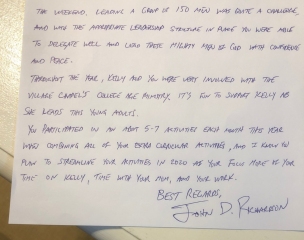 THE WEEKEND. LEADING A GROUP OF 150 MEN WAS QUITE A CHALLENGE,
AND WITH THE APPROPRIATE LEADERSHIP STRUCTURE IN PLACE YOU WERE ABLE
TO DELEGATE WELL AND LEAD THESE MIGHTY MEN OF GOD WITH CONFIDENCE
AND PEACE.
THROUGHOUT THE YEAR, KELLY AND YOU WERE VERY INVOLVED WITH THE
VILLAGE CHAPEL'S COLLEGE AGE MINISTRY. IT'S FUN TO SUPPORT KELLY AS
SHE LEADS THIS YOUNG ADULTS.
YOU PARTICIPATED IN AN 5-7 ACTIVITIES EACH MONTH THIS YEAR
WHEN COMBINING ALL OF YOUR EXTRA CURRICULAR ACTIVITIES, AND I KNOW YOU
PLAN TO STREAMLINE YOUR ACTIVITIES IN 2020 AS YOU FOCUS MORE OF YOUR
TIME ON KELLY, TIME WITH YOUR MOM, AND YOUR WORK.
BEST REGARDS,
JOHN D. RICHARDSON